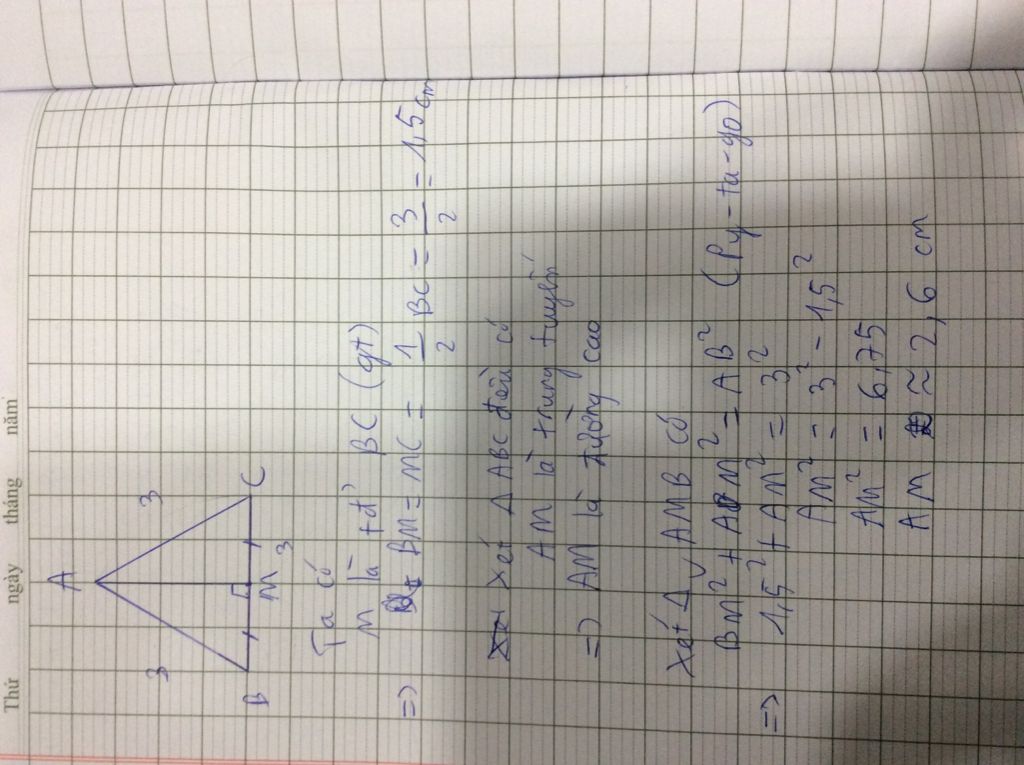 Thứ ngày tháng năm
A
3 3
B M C
3
Ta có
M là tđ BC (gt)
=> BM = MC = 1/2 BC = 3/2 = 1,5 cm
Xét Δ ABC đều có
AM là trung tuyến
=> AM là đường cao
Xét Δv AMB có
BM² + AM² = AB² (Py-ta-go)
=> 1,5² + AM² = 3²
AM² = 3² - 1,5²
AM² = 6,75
AM ≈ 2,6 cm